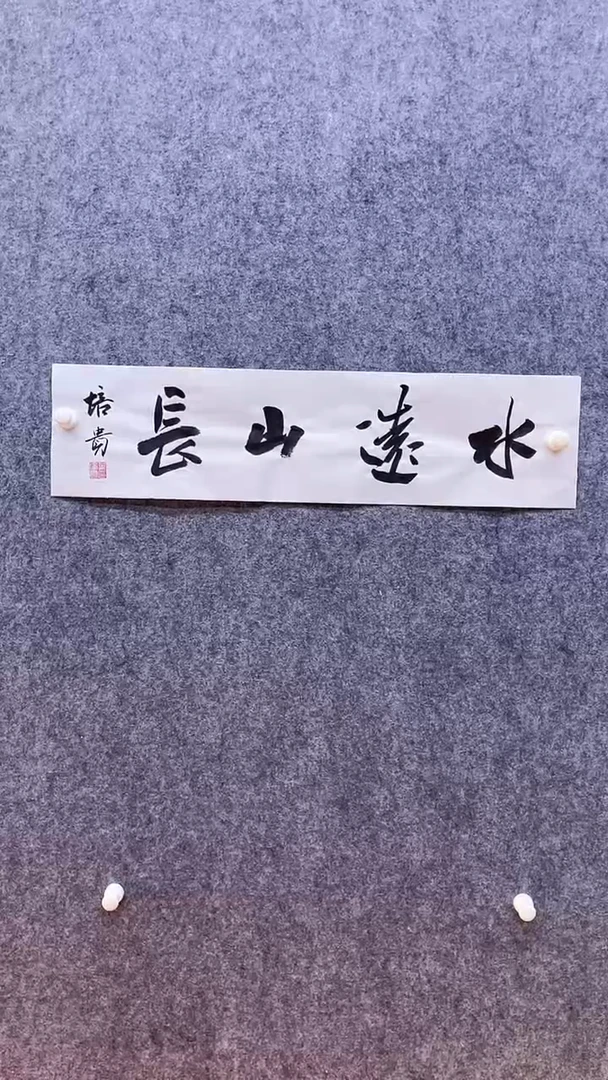 水遠山長
培貴